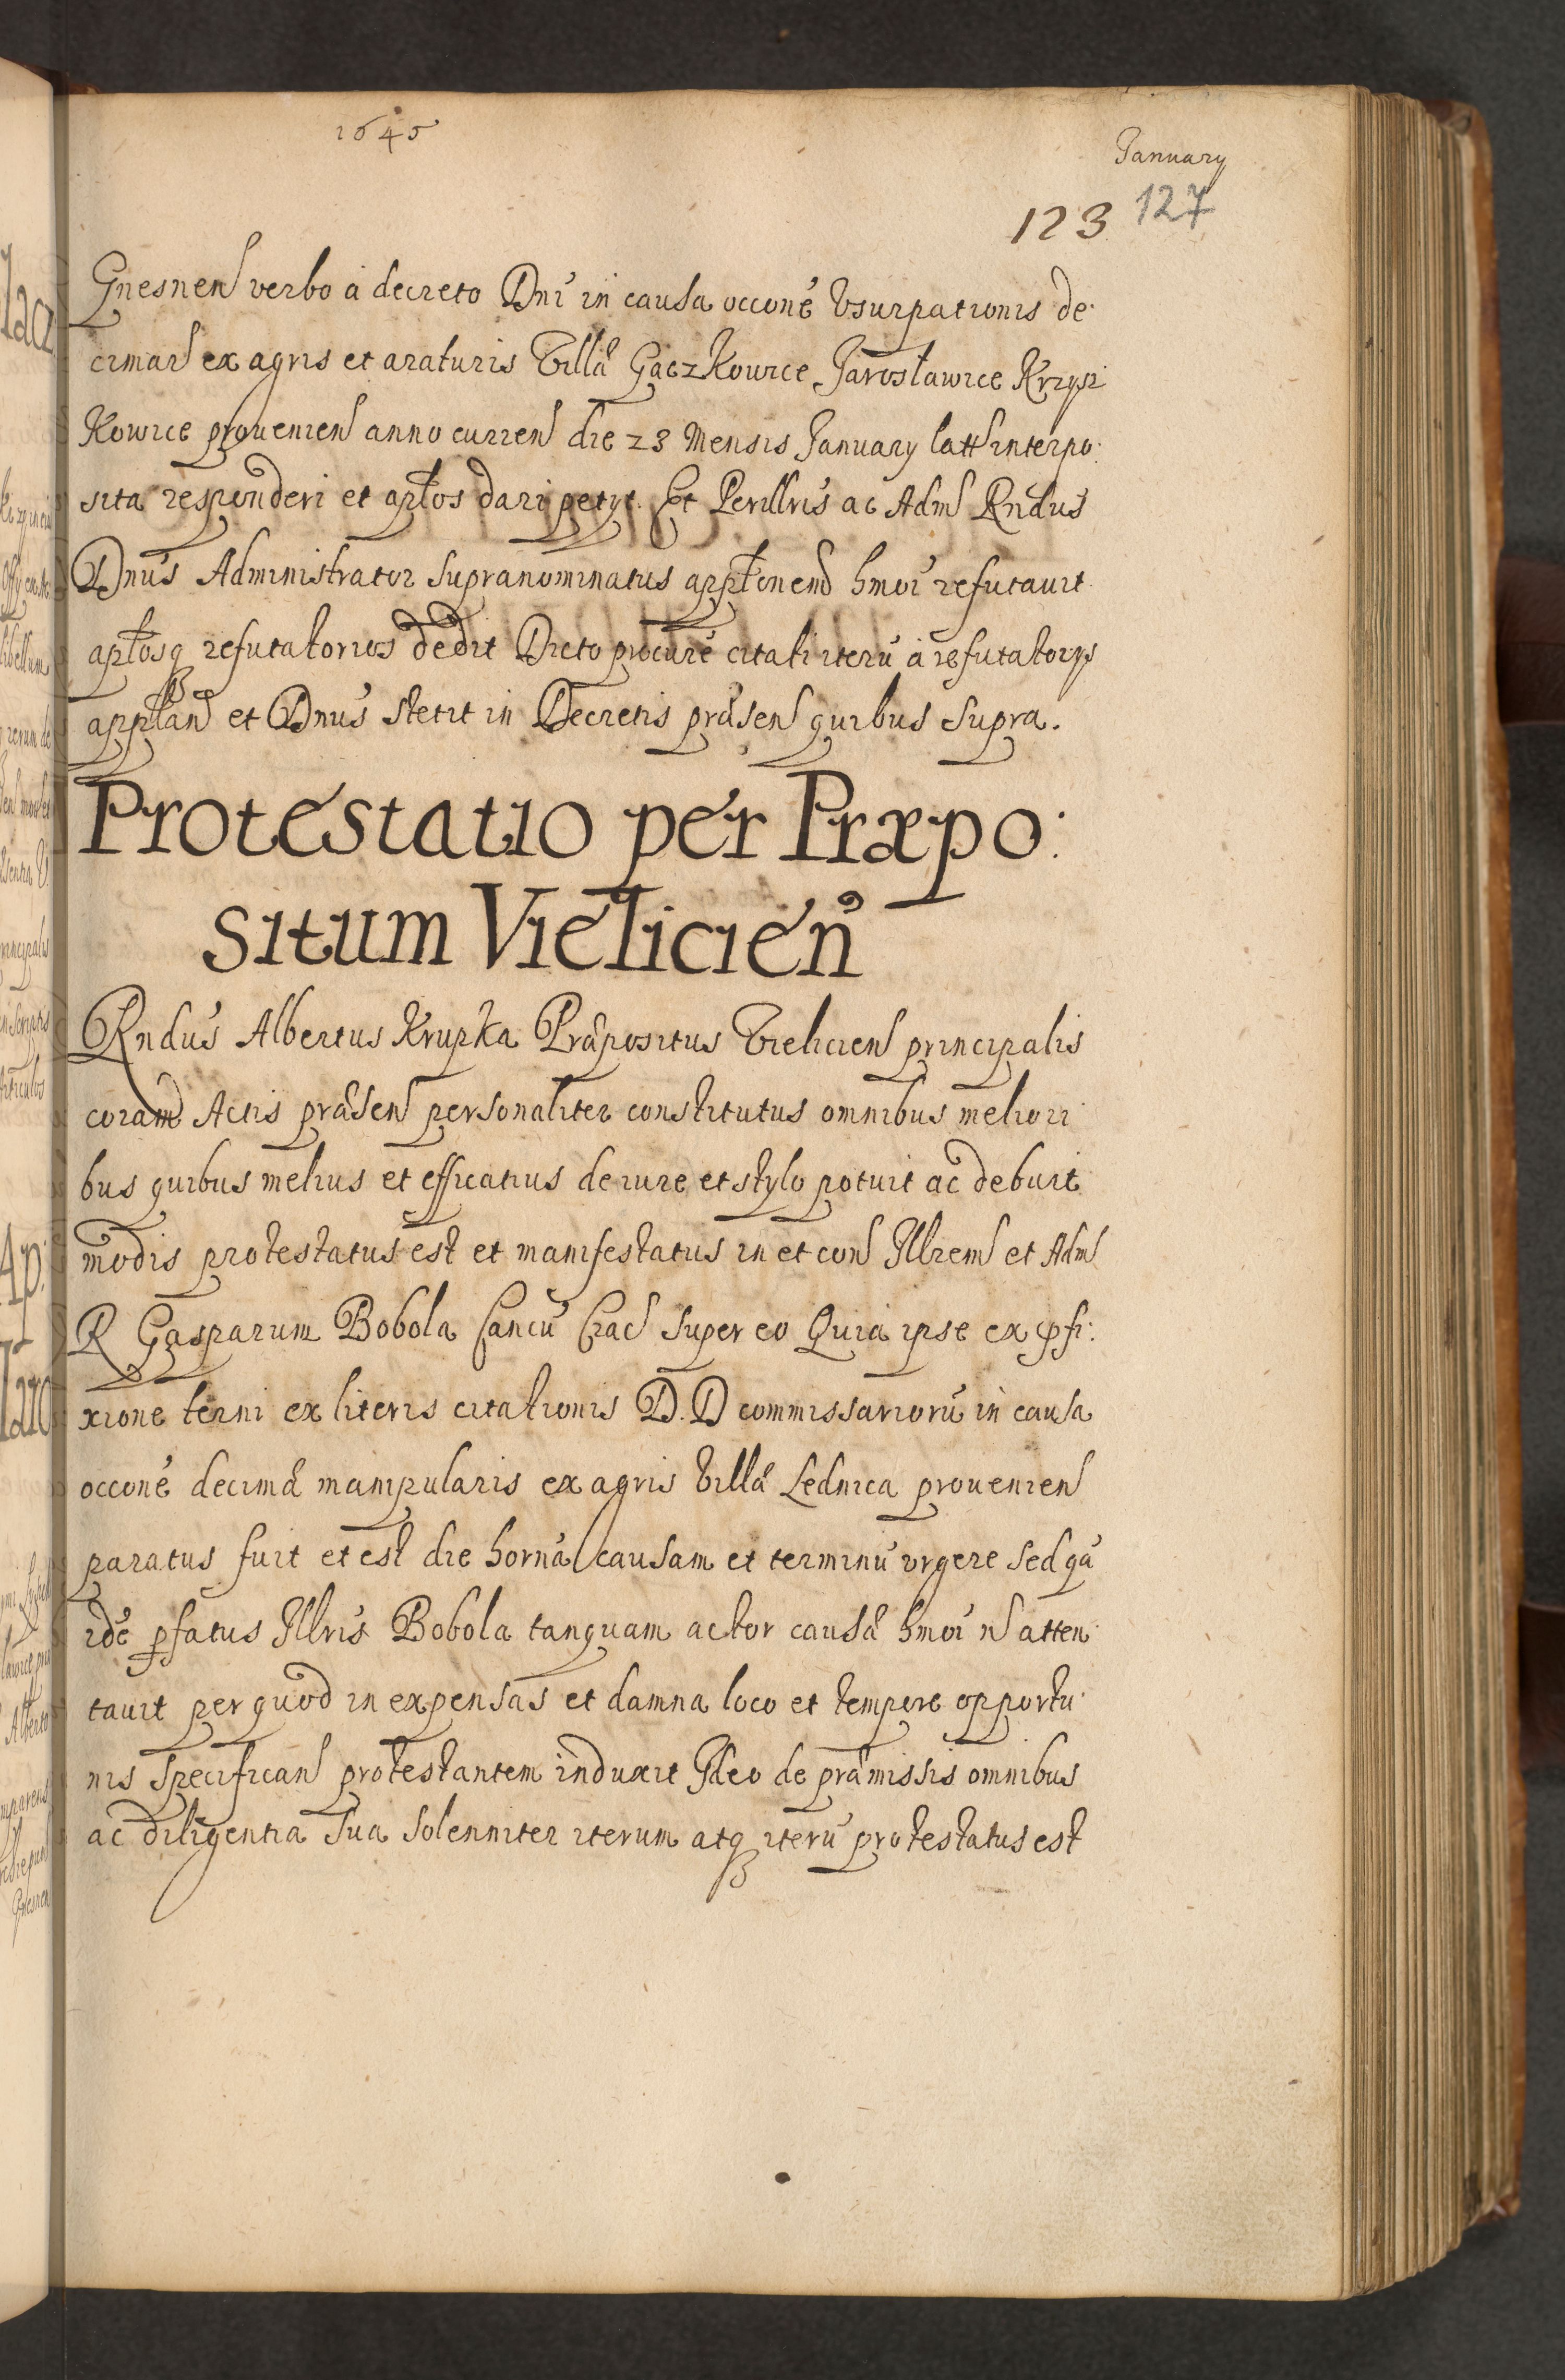 1645
January
123 127
Gnesnen verbo a decreto Dni in causa occone Vsurpationis de:
cimar ex agris et araturis Villæ Gaczkowice Jarosławice Krzysz
kowice prouenien anno curren die 23 Mensis January latt interpo:
sita responderi et aplos dari petyt. Et Perillris ac Adm Rndus
Dnus Administrator supranominatus applonend hmoi refutauit
aplosq refutatorios dedit Dicto procure citati iteru a refutatorys
applan et Dnus stetit in Decretis præsen quibus supra.
Protestatio per Præpo:
situm Vielicien
Rndus Albertus Krupka Præpositus Vielicien principalis
coram Actis præsen personaliter constitutus omnibus meliori
bus quibus melius et efficatius de iure et stylo potuit ac debuit
modis protestatus est et manifestatus in et con Illrem et Adm
R Gasparum Bobola Cancu Crac super eo Quia ipse ex pfi:
xione termi ex literis citationis D. D commissarioru in causa
occone decimæ manipularis ex agris Villæ Lednica prouenien
paratus fuit et est die horna causam et terminu vrgere sed qa
ide pfatus Illris Bobola tanquam actor causæ hmoi n atten:
tauit per quod in expensas et damna loco et tempore opportu:
nis specifican protestantem induxit Ideo de præmissis omnibus
ac diligentia sua solenniter iterum atq iteru protestatus est